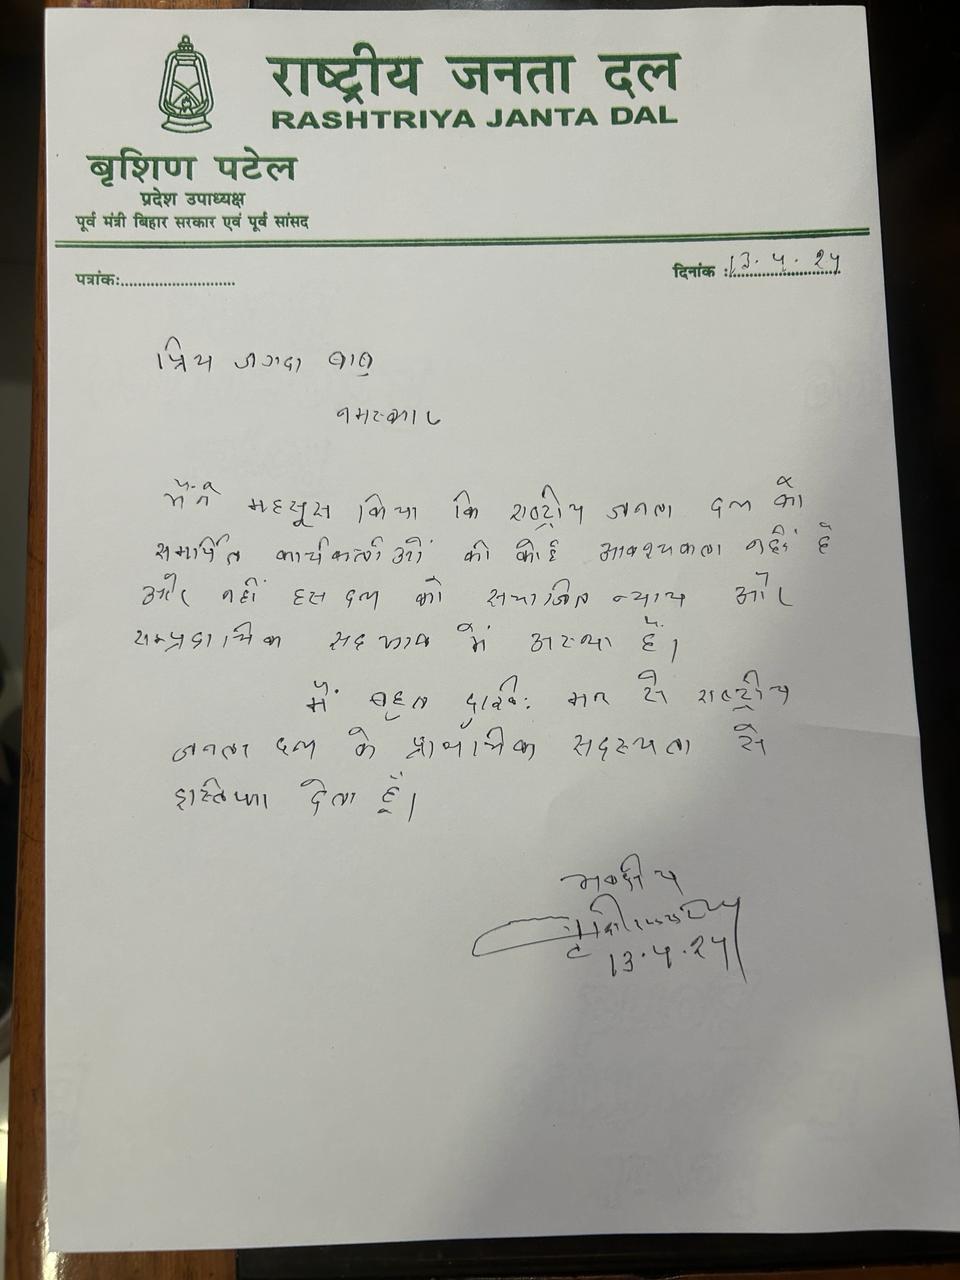 राष्ट्रीय जनता दल
RASHTRIYA JANTA DAL
बृशिण पटेल
प्रदेश उपाध्यक्ष
पूर्व मंत्री बिहार सरकार एवं पूर्व सांसद
पत्रांकः...........................
दिनांक :13.4.24
प्रिय जगदा बाबु
नमस्कार
मैंने महसूस किया कि राष्ट्रीय जनता दल को
समर्पित कार्यकर्ताओं की कोई आवश्यकता नहीं है
और नहीं इस दल को समाजिक न्याय और
सम्प्रदायिक सदभाव में आस्था है।
मैं बहुत दुखी: मन से राष्ट्रीय
जनता दल के प्राथमिक सदस्यता से
इस्तिफा देता हूँ।
भवदीय
13.4.24